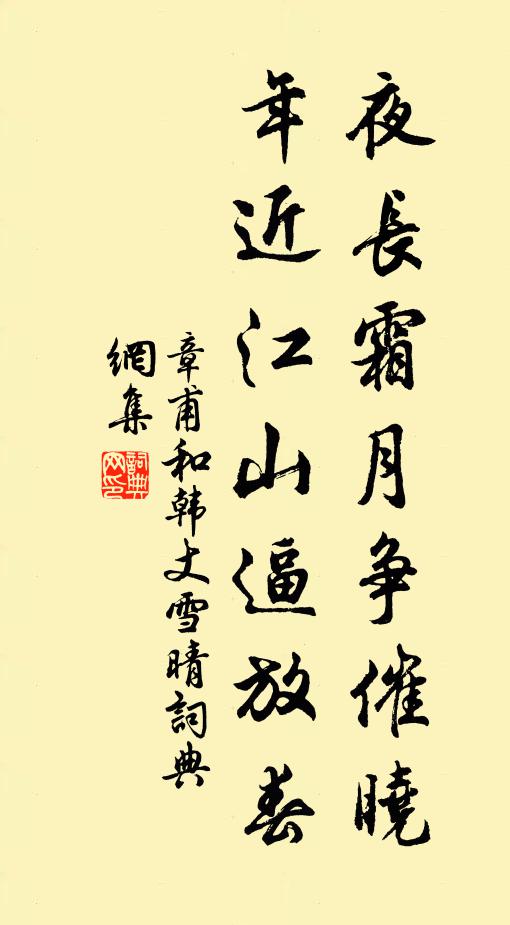 夜長霜月争催曉
年近江山逼放春
章甫和韩丈雪晴詞典
網集
詞典网印